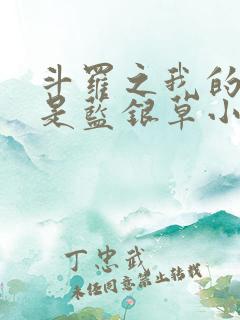 斗羅之我的
是藍銀草小
丁忠武
未经同意禁止转载